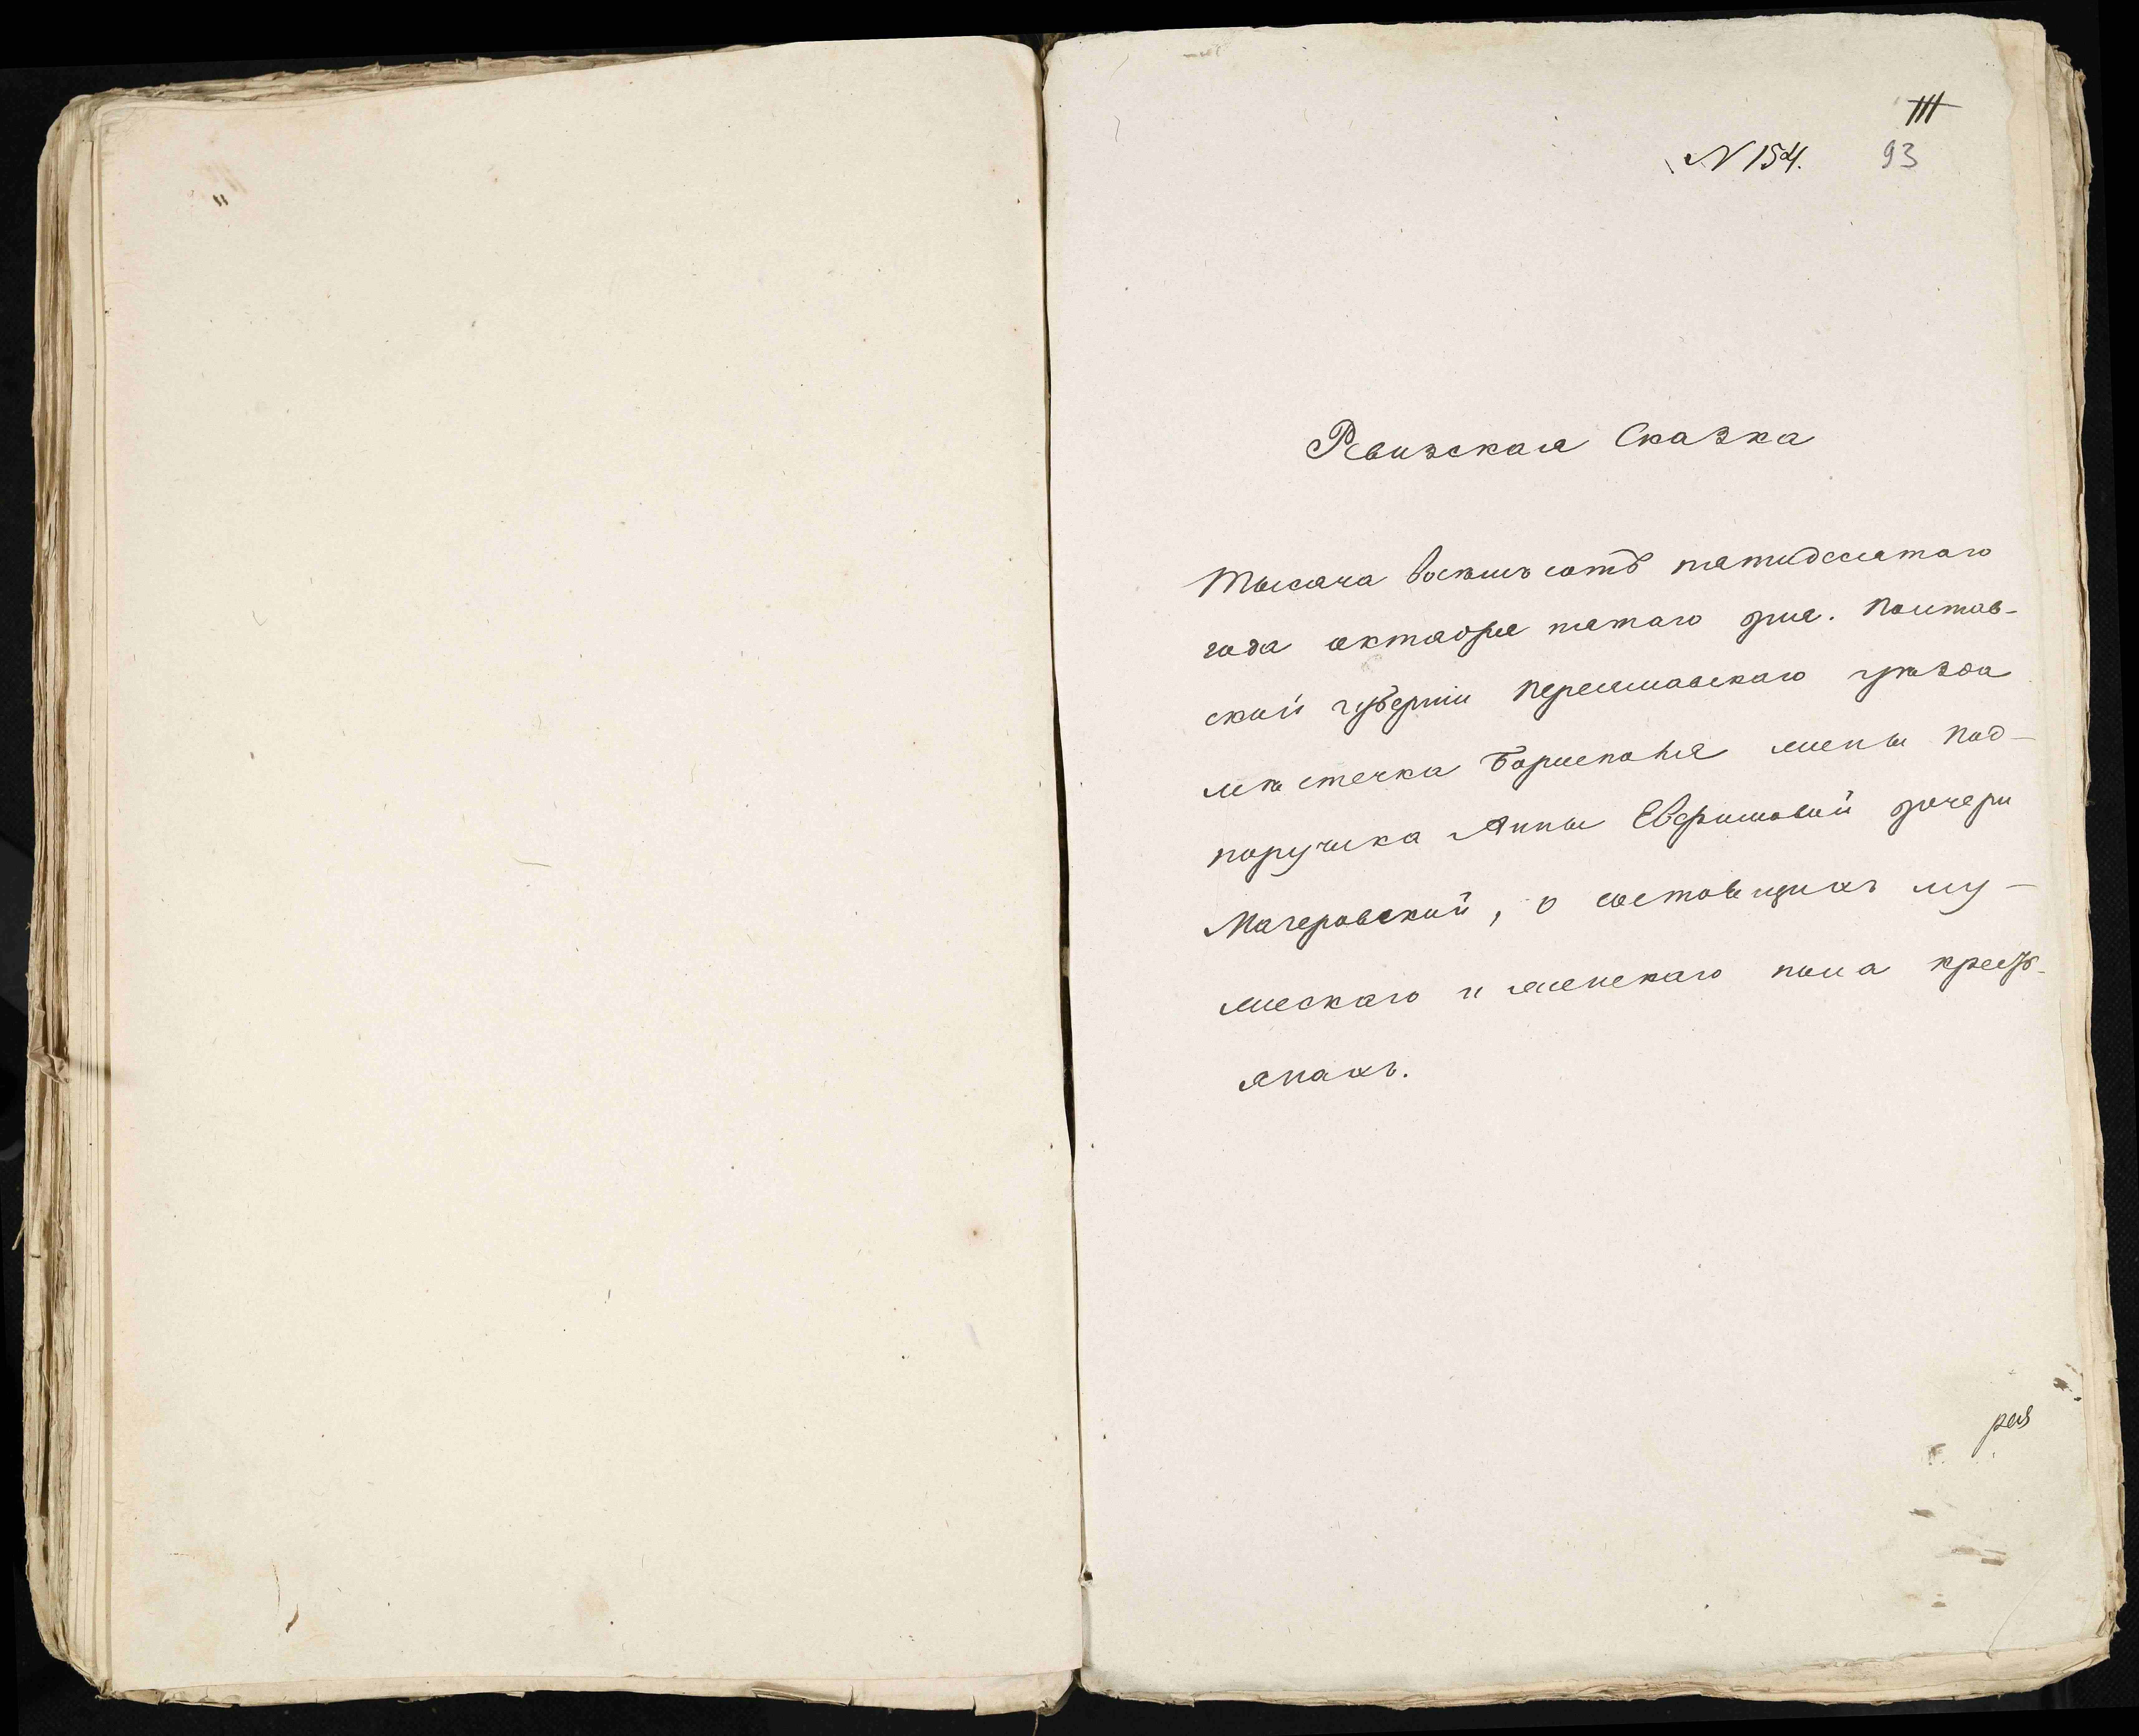 III
N 154. 93
Ревизская Сказка
Тысяча восемь сотъ пятидесятаго
года октября пятаго дня. Полтав-
ской губерніи Переяславскаго уѣзда
мѣстечка Борисполя жены Под-
поручика Анны Евфимовой дочери
Мачеровской, о состоящихъ му-
жескаго и женскаго пола кресть-
янахъ.